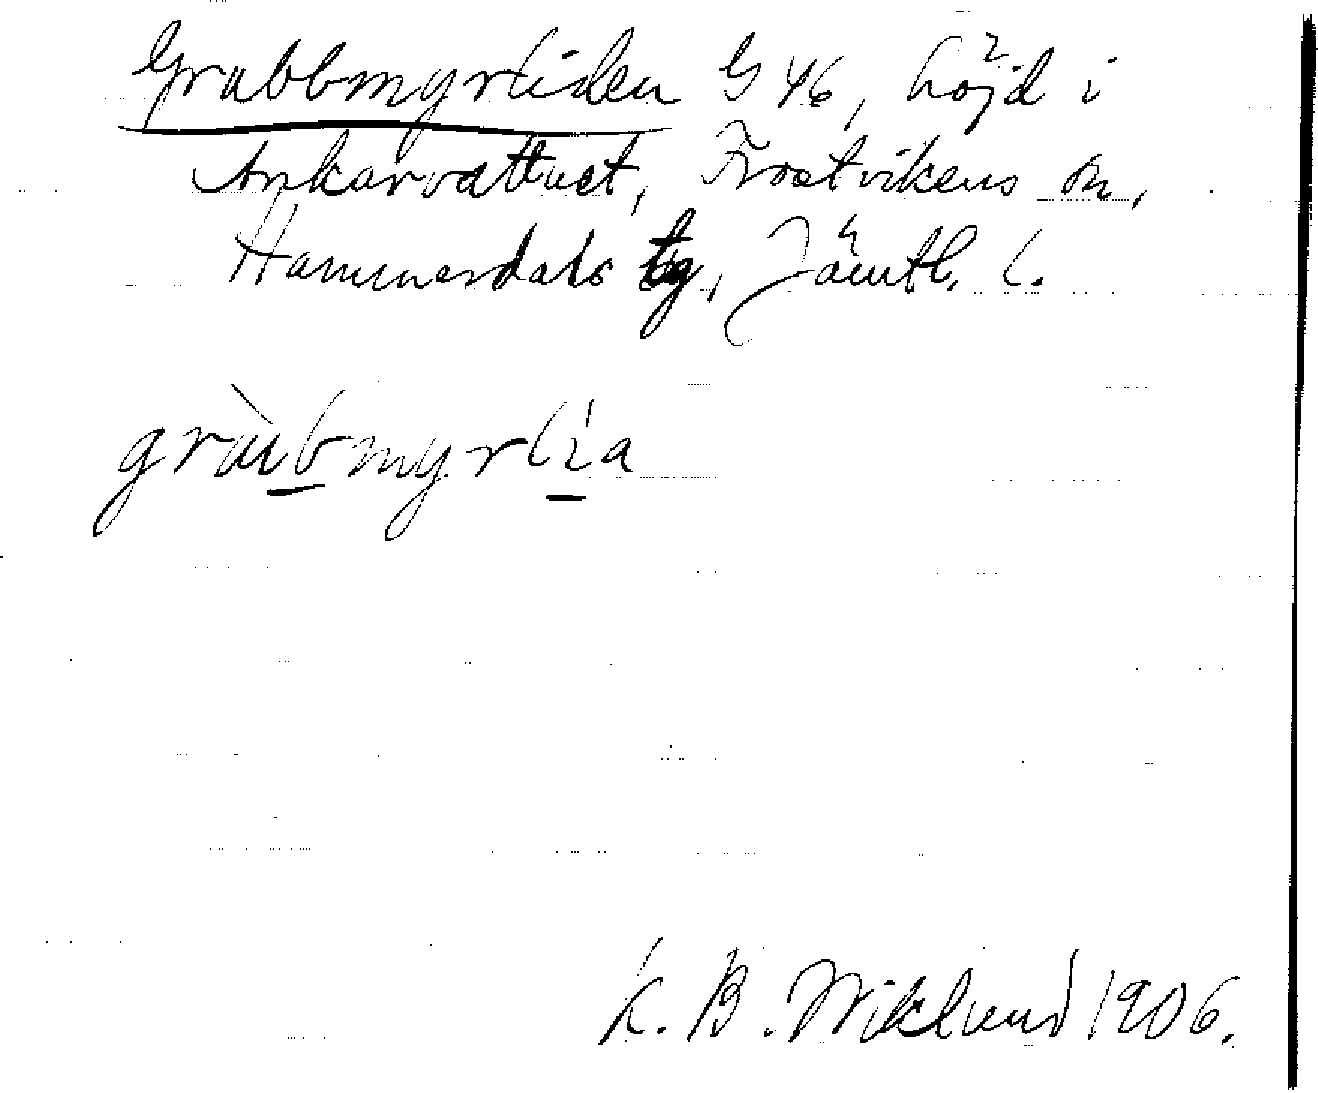 Grubbmyrliden G 46, höjd i
Ankarvattnet, Frostvikens sn,
Hammerdals tg, Jämtl. l.
grùbmyrlia
K. B. Wiklund 1906.